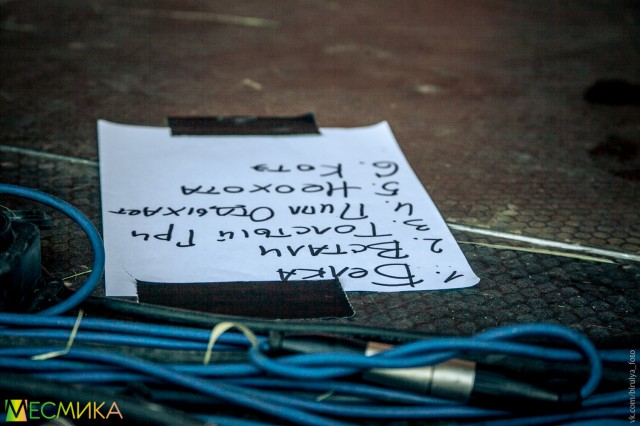 1. Белка
2. Встали
3. Толстый Гри
4. Пипл Отдыхает
5. Неохота
6. Котэ
МЕСМИКА
vk.com/hirulya_foto